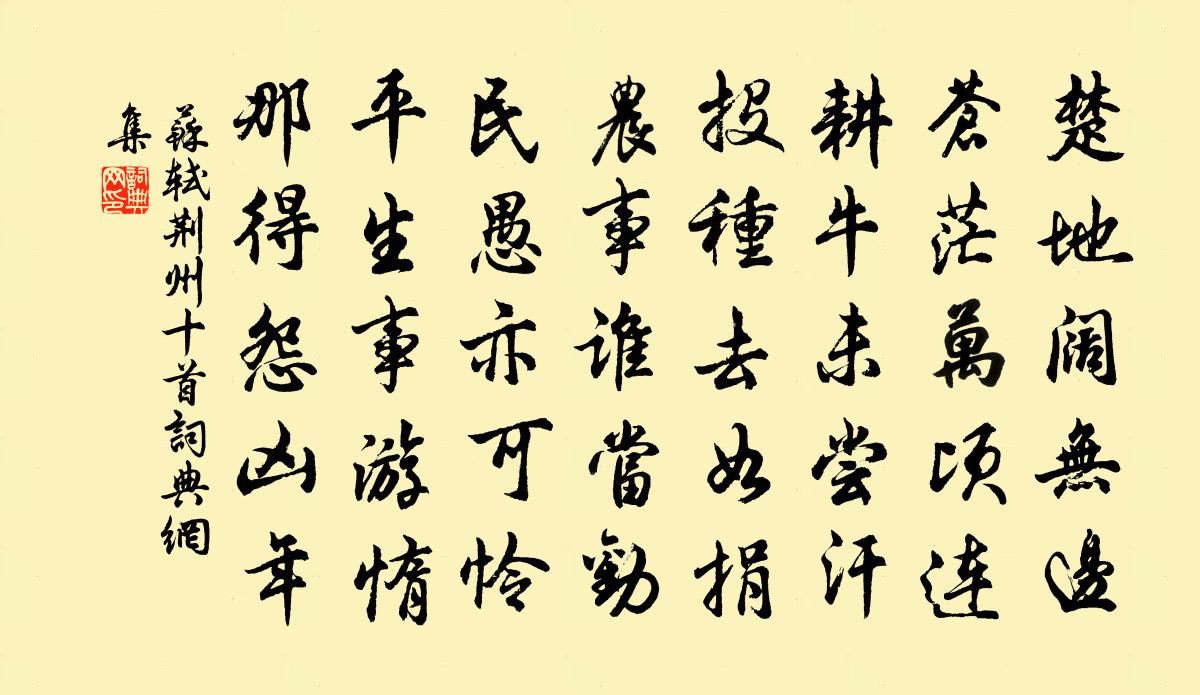 楚地闊無邊
蒼茫萬頃連
耕牛未嘗汗
投種去如捐
農事誰當勸
民愚亦可憐
平生事游惰
那得怨凶年
蘇軾荆州十首詞典網
集
詞典網印